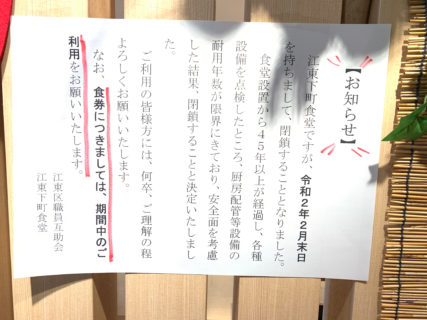 【お知らせ】
江東下町食堂ですが、令和２年２月末日
を持ちまして、閉鎖することとなりました。
食堂設置から４５年以上が経過し、各種
設備を点検したところ、厨房配管等設備の
耐用年数が限界にきており、安全面を考慮
した結果、閉鎖することと決定いたしまし
た。
ご利用の皆様方には、何卒、ご理解の程
よろしくお願いいたします。
なお、食券につきましては、期間中のご
利用をお願いいたします。
江東区職員互助会
江東下町食堂